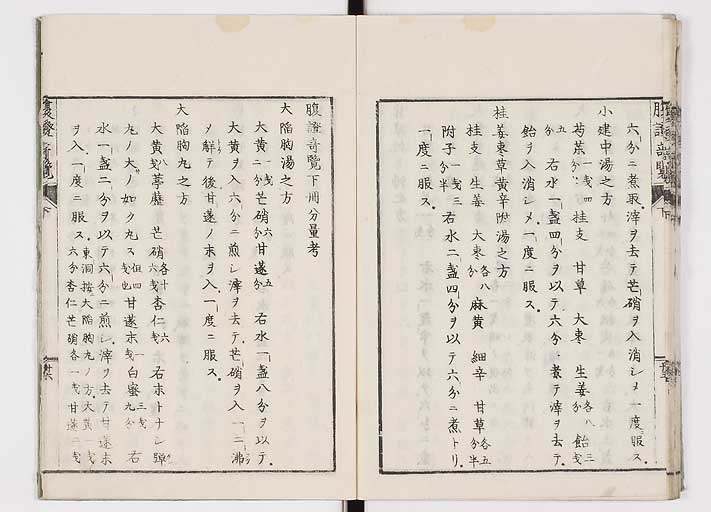 六分ニ煮取滓ヲ去テ芒硝ヲ入消シメ一度服ス
小建中湯之方
芍薬 一戔四分 桂支 甘草 大棗 生姜 各八分 飴 三戔
五分 右水一盞四分ヲ以テ六分ニ煮テ滓ヲ去テ
飴ヲ入消シメ一度ニ服ス
桂姜棗草黄辛附湯之方
桂支 生姜 大棗 各八分 麻黄 細辛 甘草 各五分半
附子 一戔三分半 右水二盞四分ヲ以テ六分ニ煮トリ
一度ニ服ス
腹證奇覽下冊分量考
大陷胸湯之方
大黄 一戔二分 芒硝 六分 甘遂 五分 右水一盞八分ヲ以テ
大黄ヲ入六分ニ煎シ滓ヲ去テ芒硝ヲ入一二沸
メ解テ後甘遂ノ末ヲ入一度ニ服ス
大陷胸丸之方
大黄 八戔 葶藶 芒硝 各十六戔 杏仁 六戔 右末トナシ弾
丸ノ大ノ如ク丸ス 但四戔也 甘遂末 一戔 白蜜 三戔九分 右
水一盞二分ヲ以テ六分ニ煎シ滓ヲ去テ甘遂末
ヲ入一度ニ服ス 東洞按大陷胸丸ノ方大黄一戔六分杏仁芒硝各一戔甘遂二戔